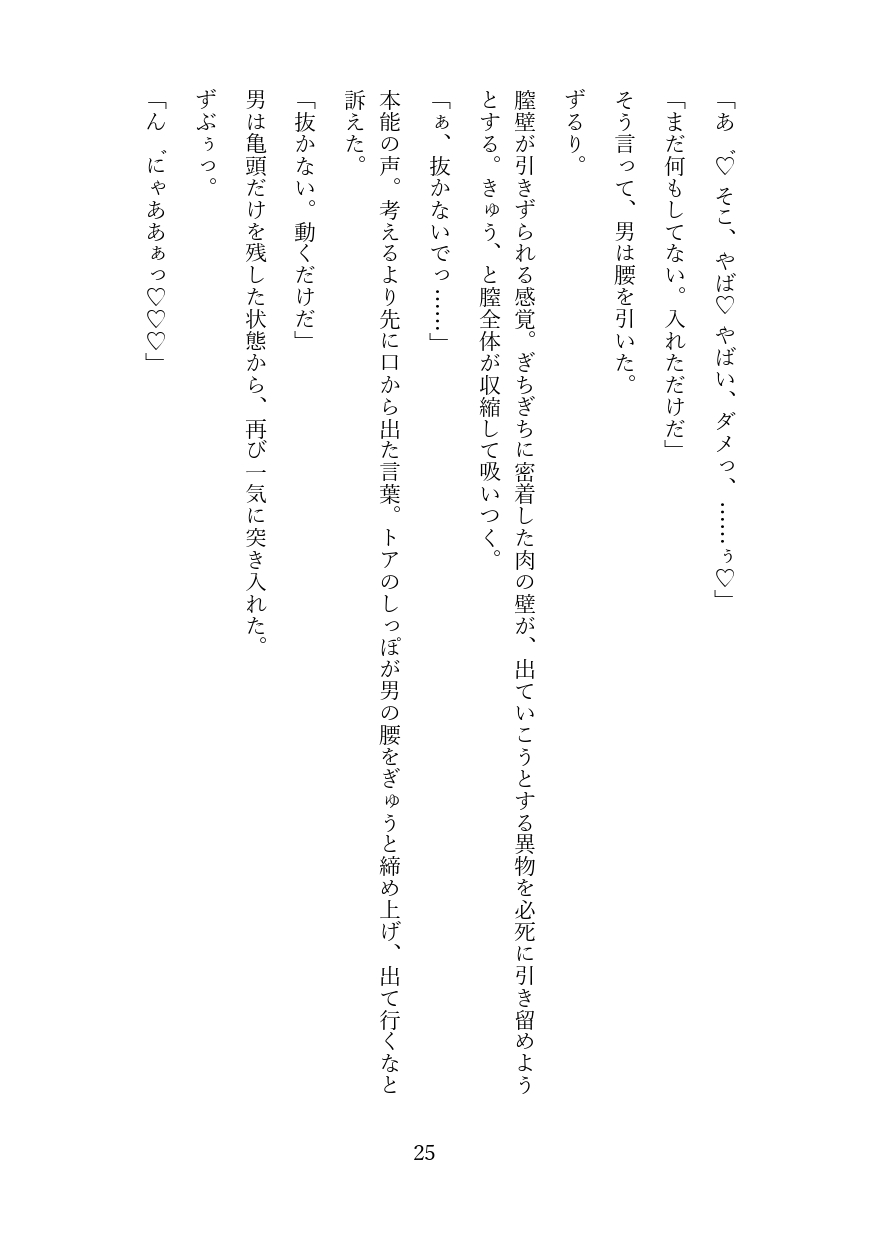 「あ゛♡ そこ、やば♡ やばい、ダメっ、……ぅ♡」
「まだ何もしてない。入れただけだ」
そう言って、男は腰を引いた。
ずるり。
膣壁が引きずられる感覚。ぎちぎちに密着した肉の壁が、出ていこうとする異物を必死に引き留めよう
とする。きゅう、と膣全体が収縮して吸いつく。
「ぁ、抜かないでっ……」
本能の声。考えるより先に口から出た言葉。トアのしっぽが男の腰をぎゅうと締め上げ、出て行くなと
訴えた。
「抜かない。動くだけだ」
男は亀頭だけを残した状態から、再び一気に突き入れた。
ずぶぅっ。
「ん゛にゃああぁっ♡♡♡」
25